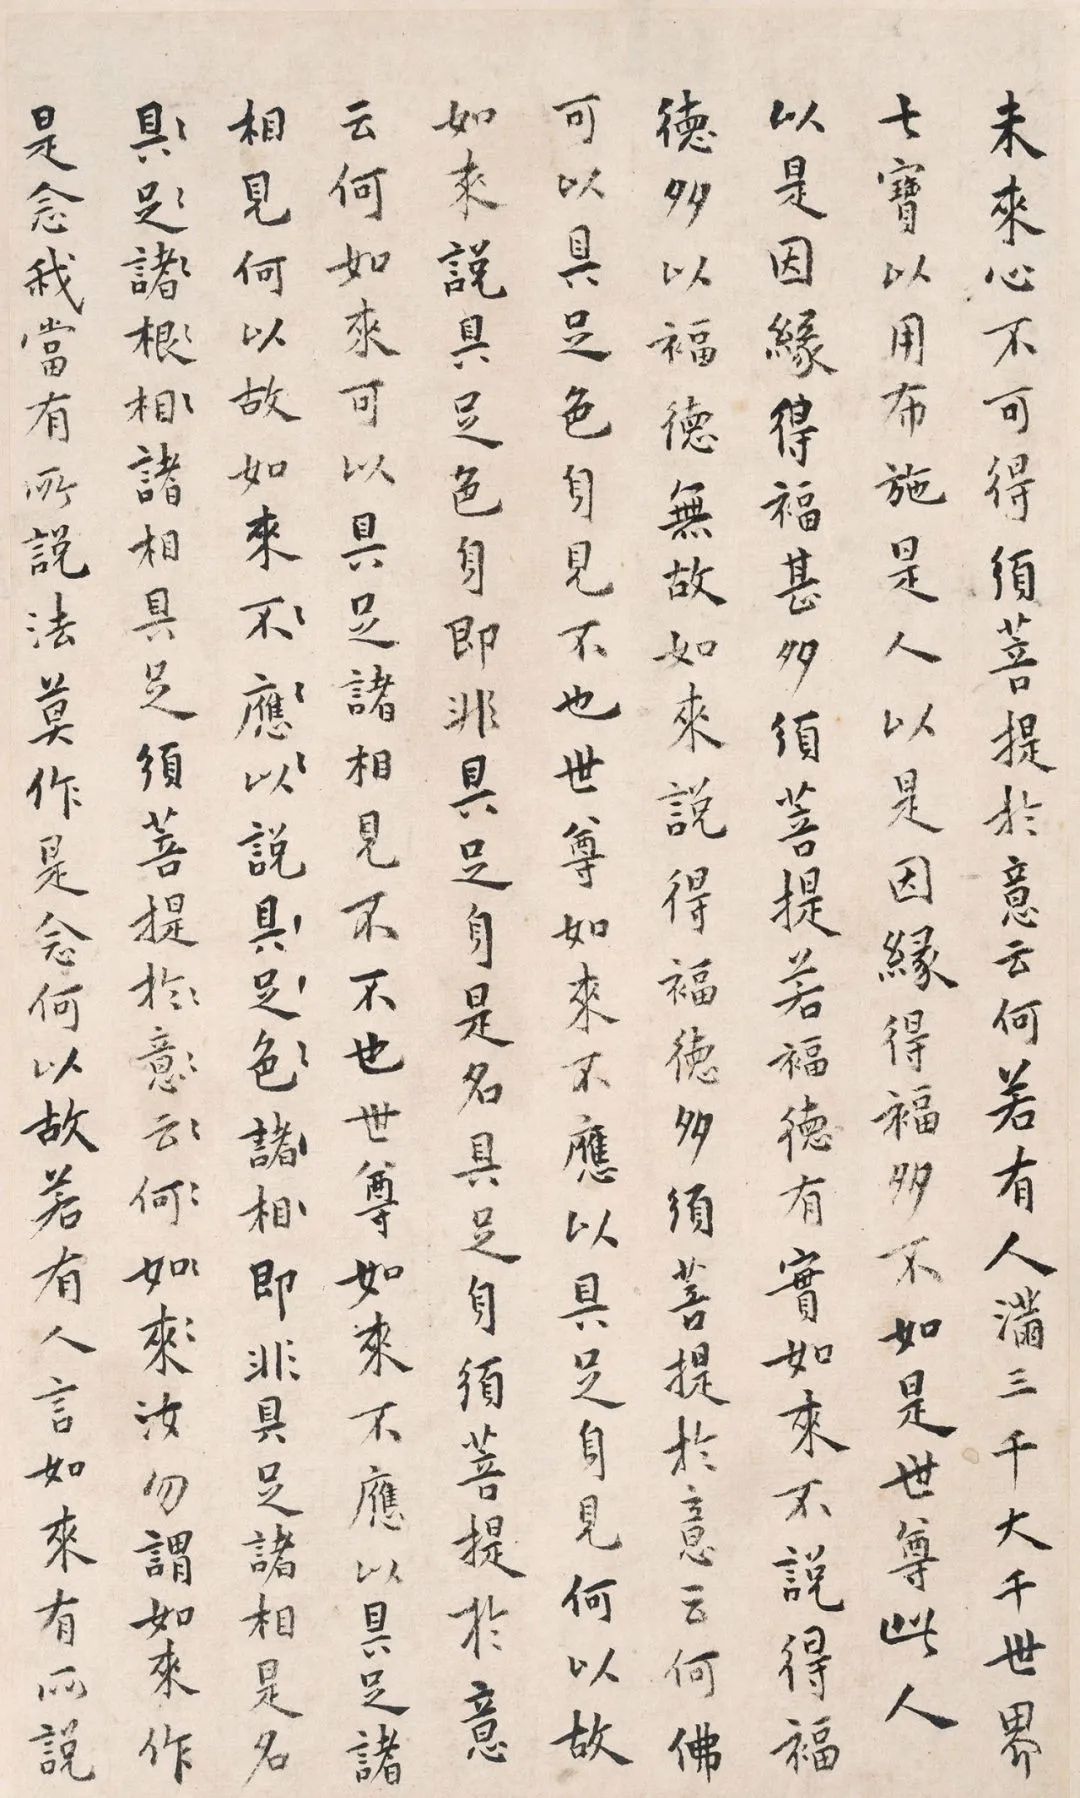 未來心不可得 須菩提於意云何若有人滿三千大千世界
七寶以用布施是人以是因緣得福多不如是世尊此人
以是因緣得福甚多須菩提若福德有實如來不說得福
德多以福德無故如來說得福德多須菩提於意云何佛
可以具足色身見不也世尊如來不應以具足身見何以故
如來說具足色身即非具足身是名具足身須菩提於意
云何如來可以具足諸相見不不也世尊如來不應以具足諸
相見何以故如來不應以說具足色諸相即非具足諸相是名
具足諸根相諸相具足須菩提於意云何如來汝勿謂如來作
是念我當有所說法莫作是念何以故若有人言如來有所說